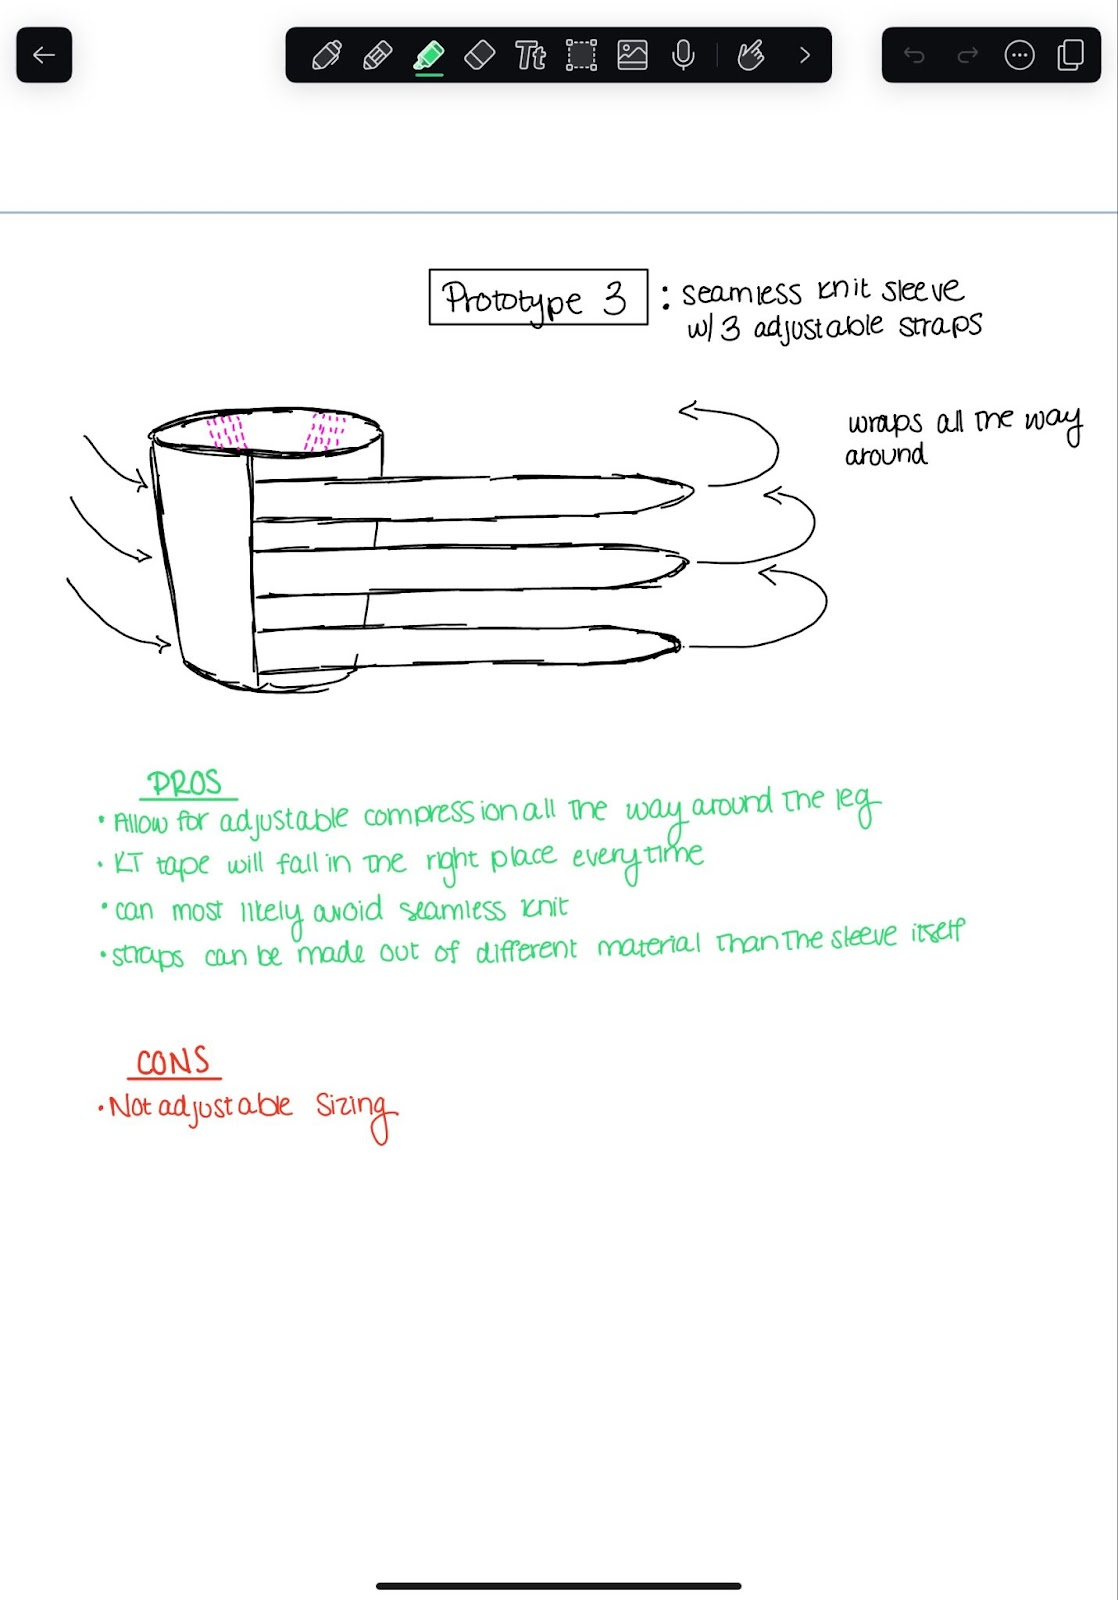 Tt
Prototype 3 : seamless knit sleeve
w/ 3 adjustable straps
wraps all the way
around
PROS
• Allow for adjustable compression all the way around the leg
• KT tape will fall in the right place everytime
• can most likely avoid seamless knit
• straps can be made out of different material than the sleeve itself
CONS
• Not adjustable sizing